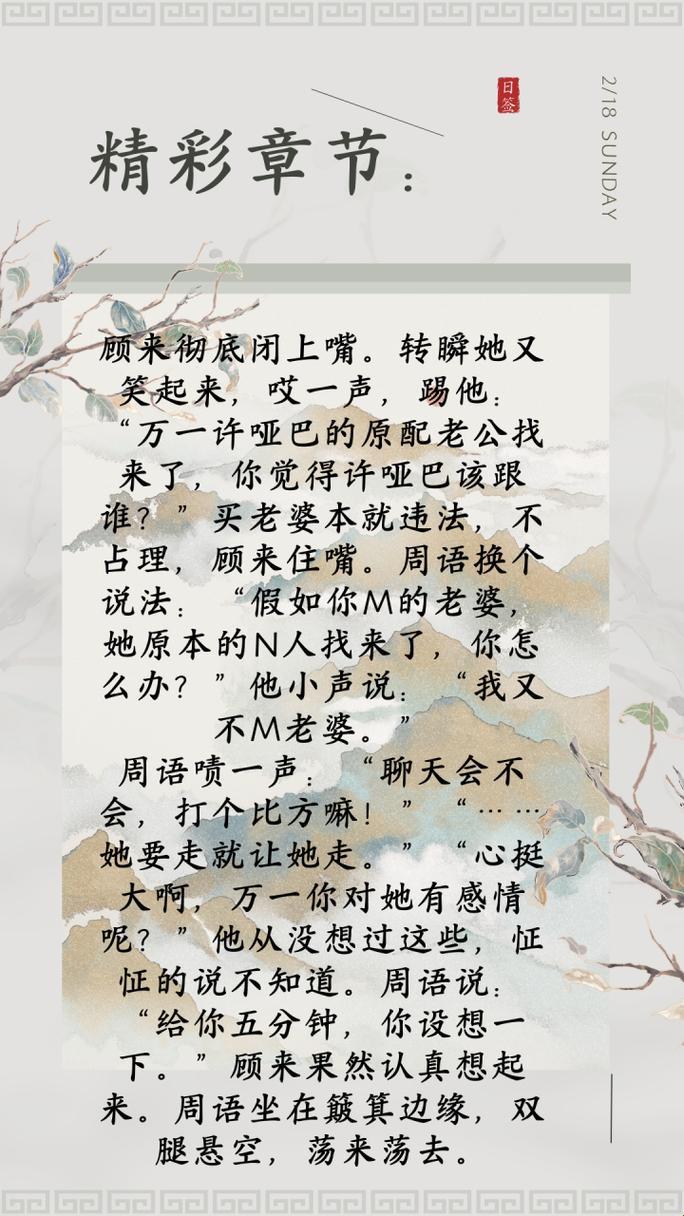 日签
2/18 SUNDAY
精彩章节：
顾来彻底闭上嘴。转瞬她又
笑起来，哎一声，踢他：
“万一许哑巴的原配老公找
来了，你觉得许哑巴该跟
谁？”买老婆本就违法，不
占理，顾来住嘴。周语换个
说法：“假如你M的老婆，
她原本的N人找来了，你怎
么办？”他小声说：“我又
不M老婆。”
周语啧一声：“聊天会不
会，打个比方嘛！”“……
她要走就让她走。”“心挺
大啊，万一你对她有感情
呢？”他从没想过这些，怔
怔的说不知道。周语说：
“给你五分钟，你设想一
下。”顾来果然认真想起
来。周语坐在簸箕边缘，双
腿悬空，荡来荡去。